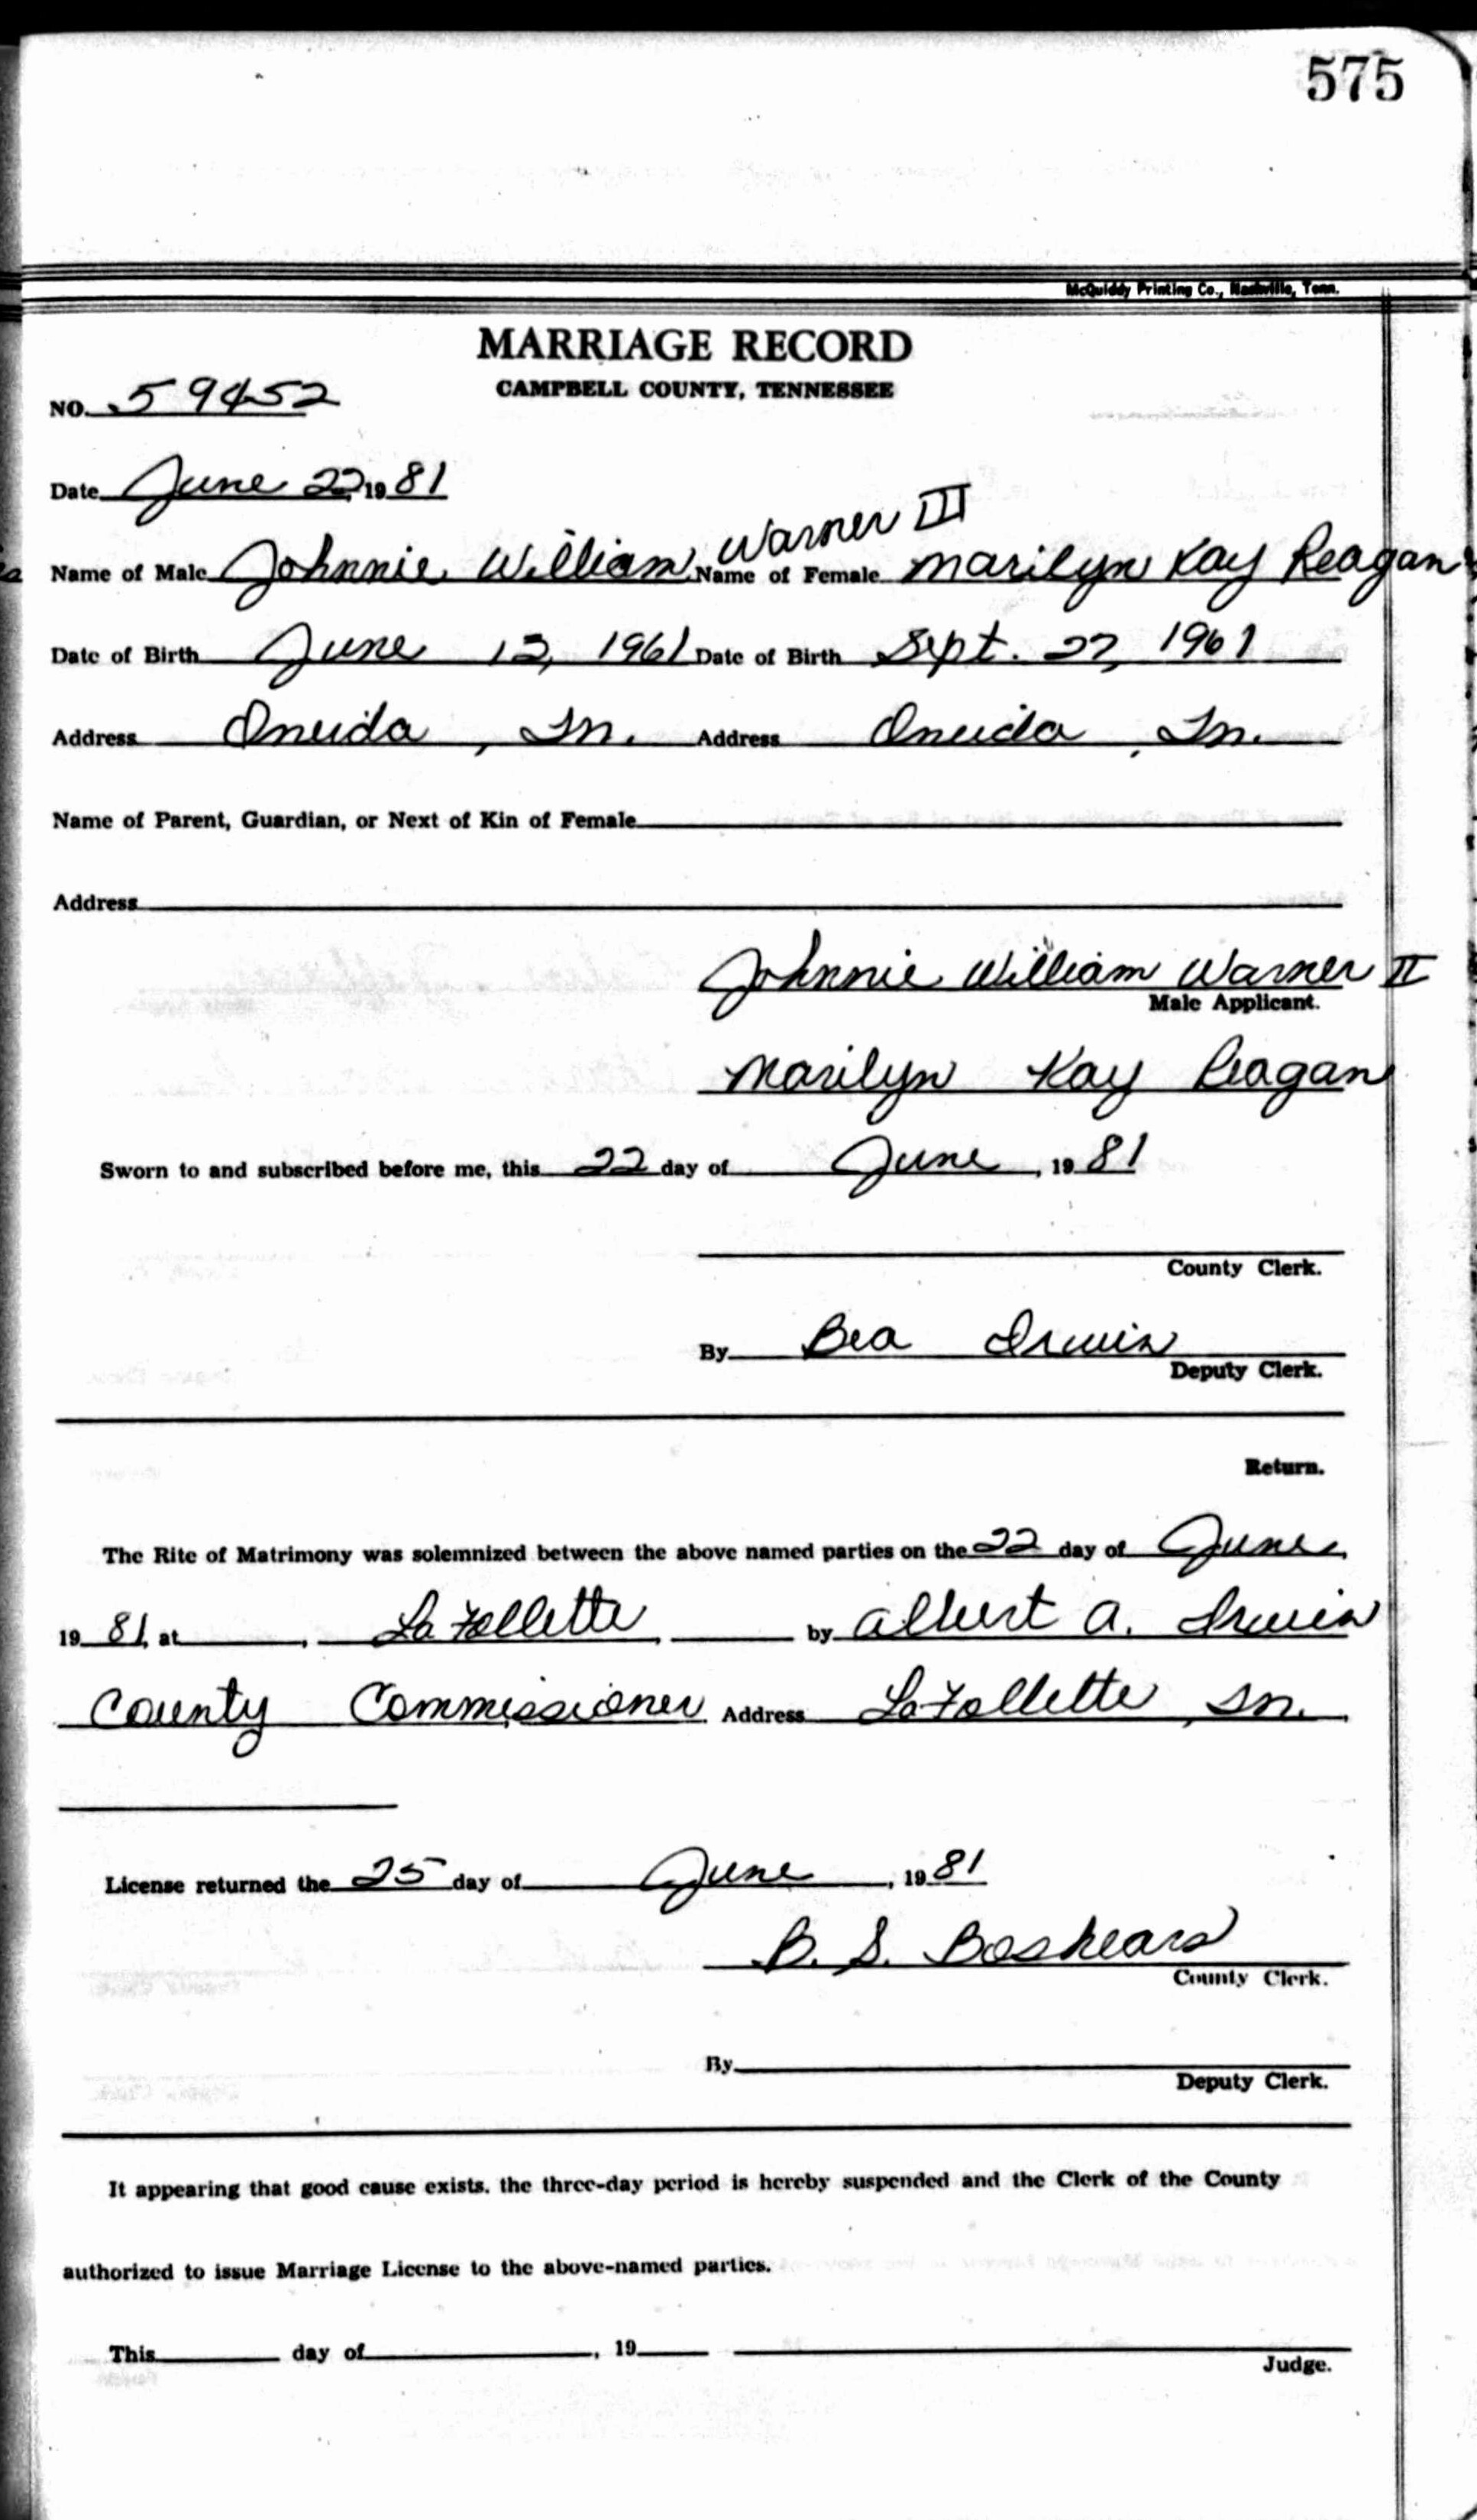 575
McQuiddy Printing Co., Nashville, Tenn.
MARRIAGE RECORD
CAMPBELL COUNTY, TENNESSEE
NO. 59452
Date June 22, 1981
Name of Male Johnnie William Warner III Name of Female Marilyn Kay Reagan
Date of Birth June 12, 1961 Date of Birth Sept. 27, 1961
Address Oneida, Tn. Address Oneida, Tn.
Name of Parent, Guardian, or Next of Kin of Female
Address
Johnnie William Warner II
Male Applicant.
Marilyn Kay Reagan
Sworn to and subscribed before me, this 22 day of June, 1981
County Clerk.
By Bea Irwin
Deputy Clerk.
Return.
The Rite of Matrimony was solemnized between the above named parties on the 22 day of June,
1981, at , LaFollette, by Albert A. Irwin
County Commissioner Address LaFollette, Tn.
License returned the 25 day of June, 1981
B. S. Boshears
County Clerk.
By
Deputy Clerk.
It appearing that good cause exists, the three-day period is hereby suspended and the Clerk of the County
authorized to issue Marriage License to the above-named parties.
This day of , 19
Judge.